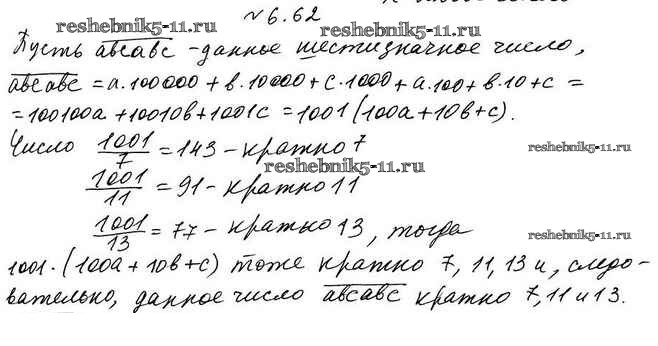 №6.62
reshebnik5-11.ru
reshebnik5-11.ru
Пусть авсавс - данное шестизначное число,
авсавс = а·100000 + в·10000 + с·1000 + а·100 + в·10 + с =
= 100100а + 10010в + 1001с = 1001 (100а + 10в + с).
Число 1001/7 = 143 - кратно 7
reshebnik5-11.ru
1001/11 = 91 - кратно 11
1001/13 = 77 - кратно 13, тогда
reshebnik5-11.ru
1001·(100а + 10в + с) тоже кратно 7, 11, 13 и, следо-
вательно, данное число авсавс кратно 7, 11 и 13.